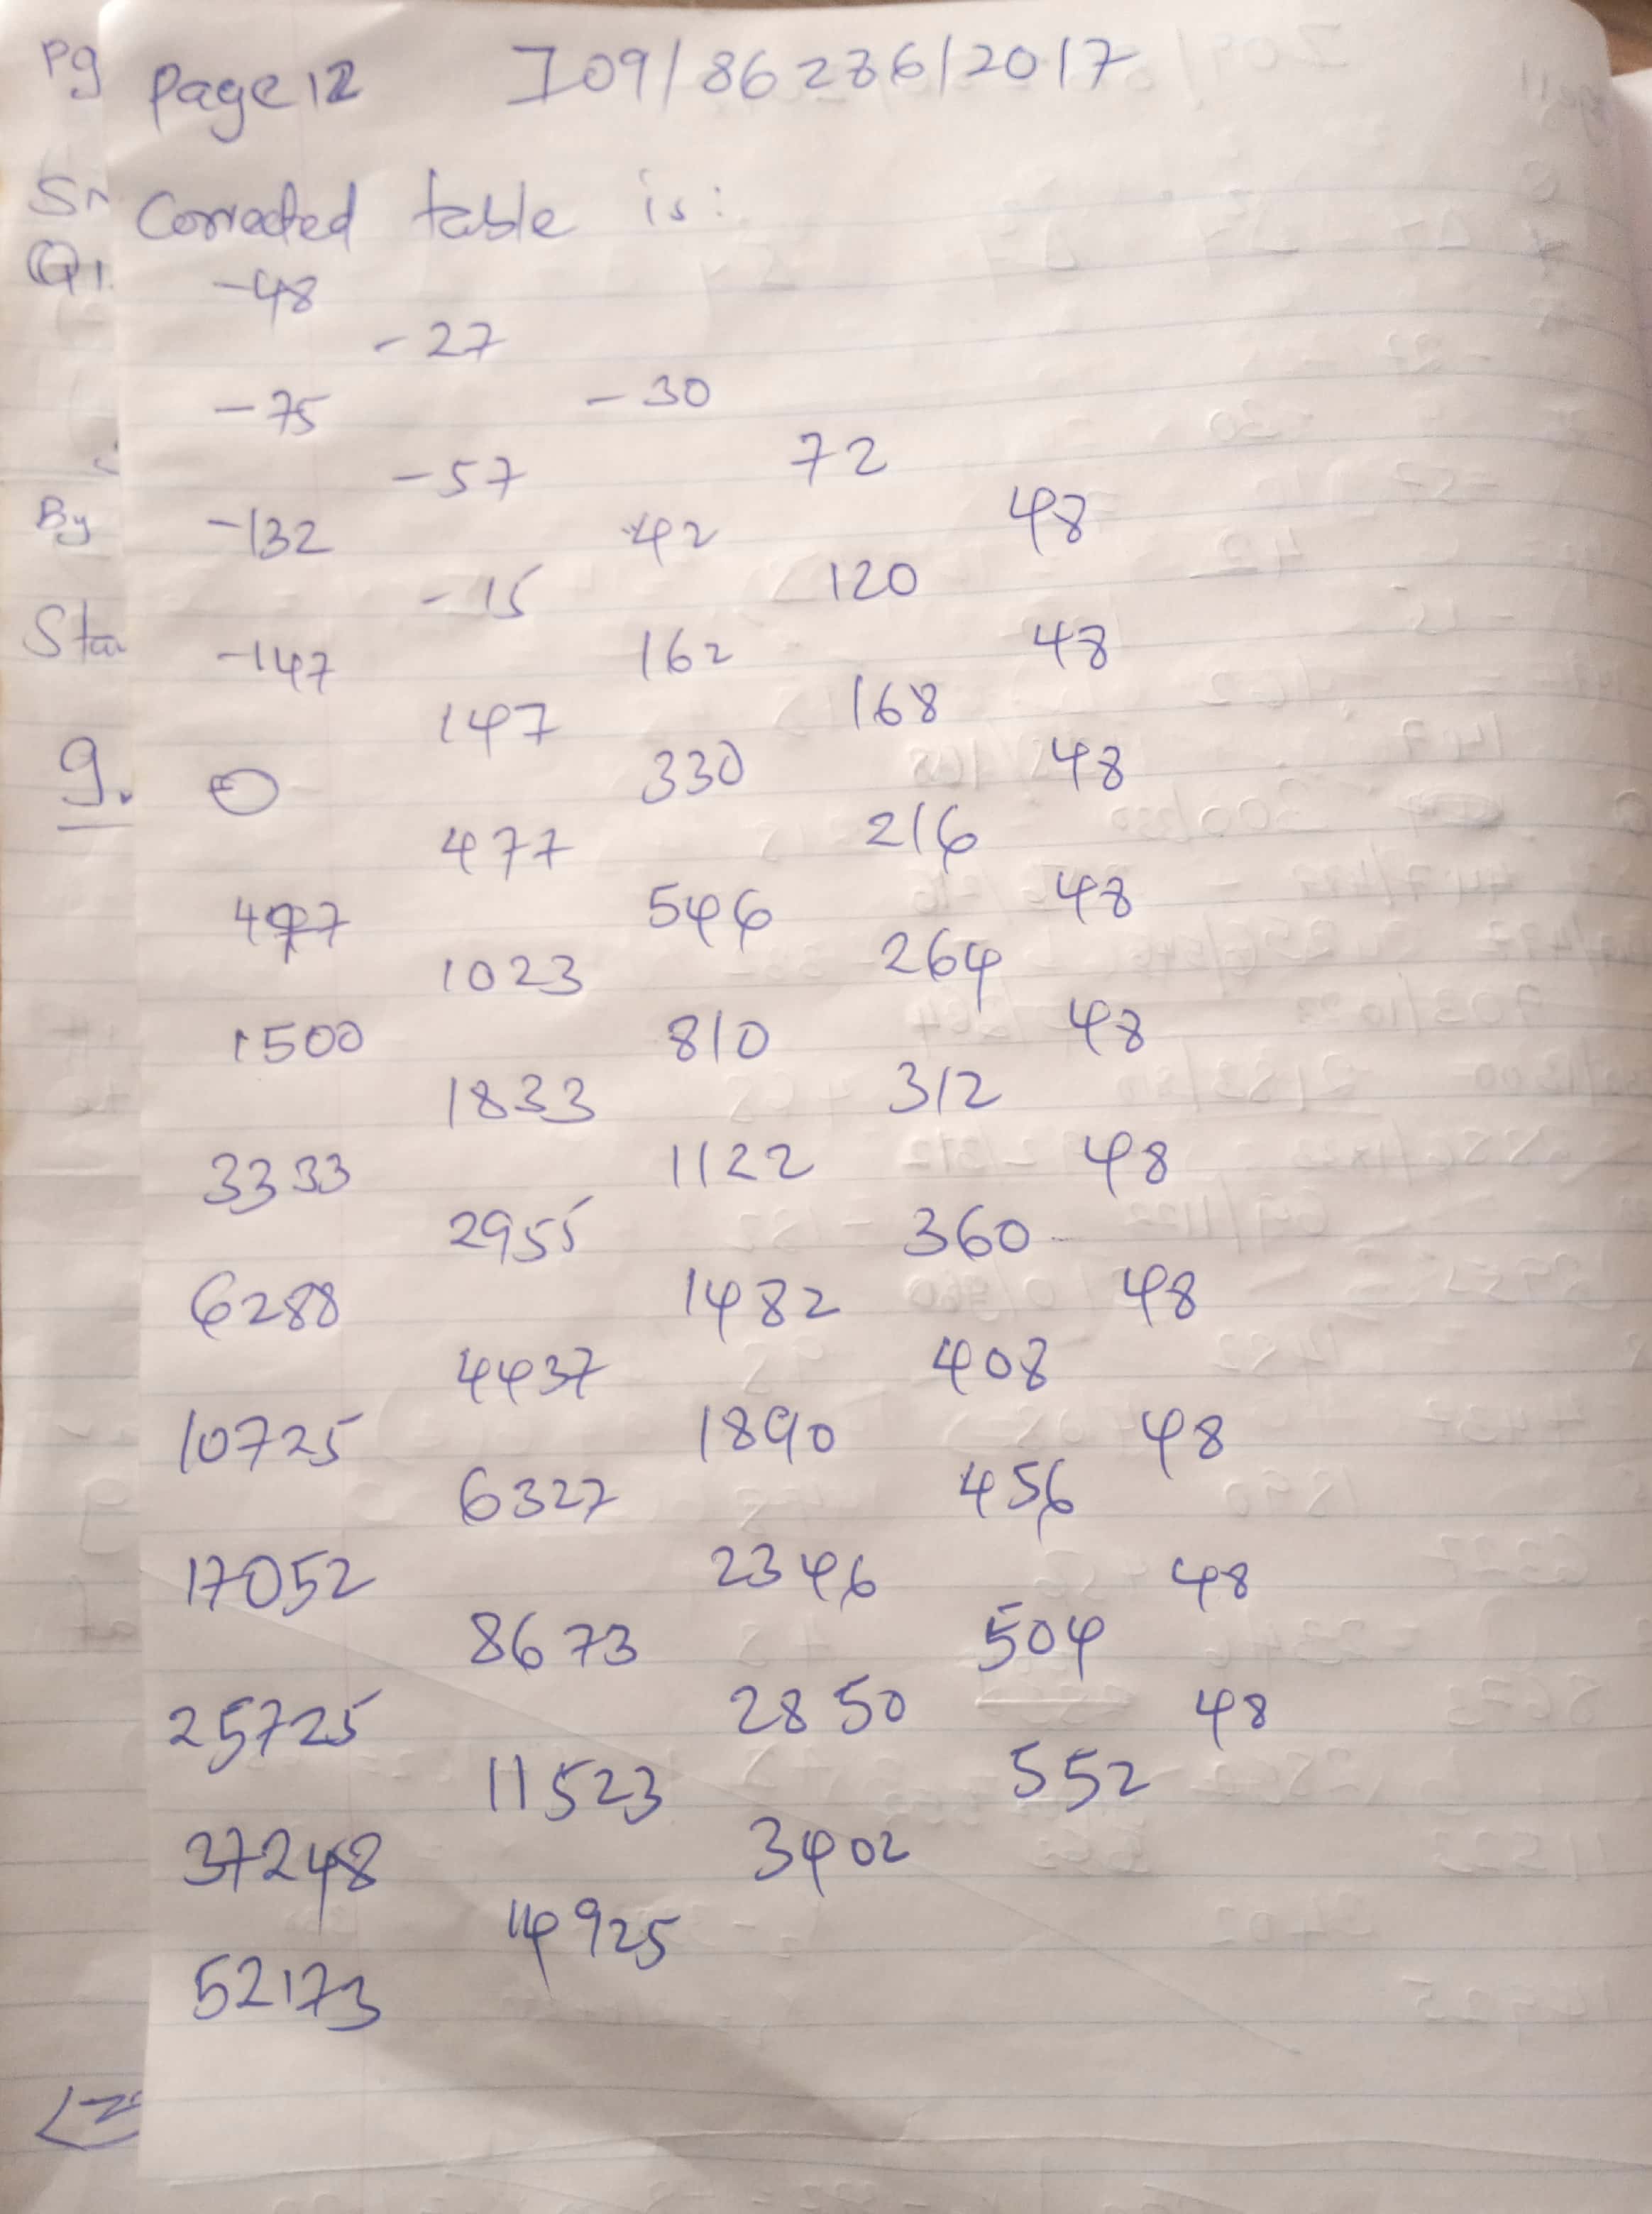 Pg
Page 12 I09/86236/2017
Corrected table is:
Q1.
-48
-27
-75 -30
-57 72
By
-132 42 48
-15 120
-147 162 48
147 168
9.
0 330 48
477 216
477 546 48
1023 264
1500 810 48
1833 312
3333 1122 48
2955 360
6288 1482 48
4437 408
10725 1890 48
6327 456
17052 2346 48
8673 504
25725 2850 48
11523 552
37248 3402
14925
52173